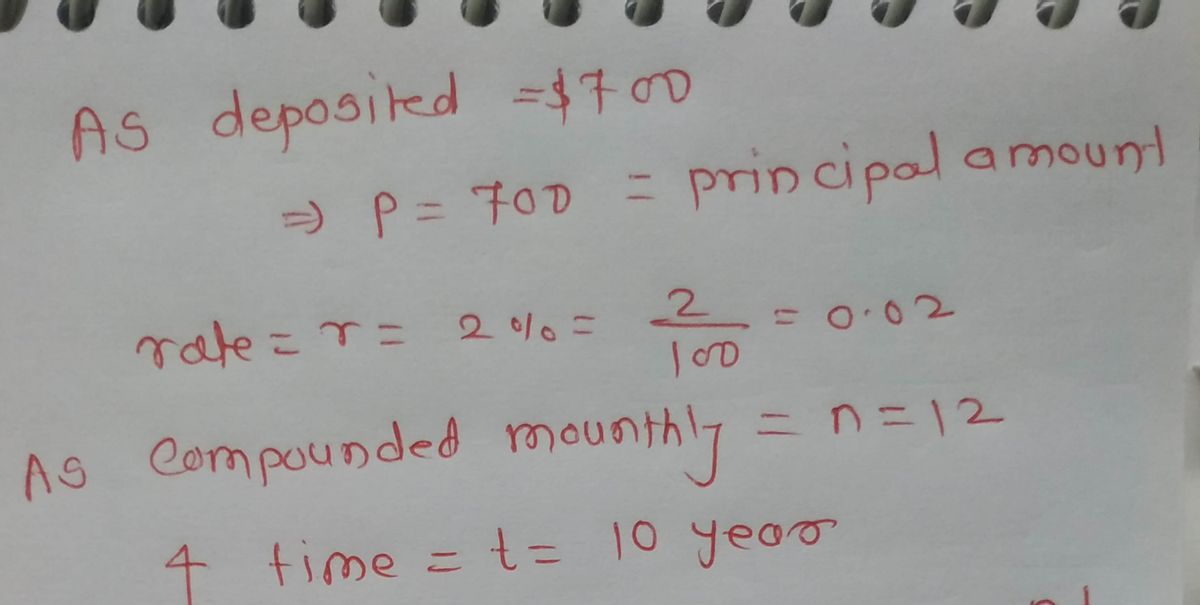 As deposited = $700
⇒ P = 700 = principal amount
rate = r = 2% = 2/100 = 0.02
As Compounded mounthly = n = 12
4 time = t = 10 year